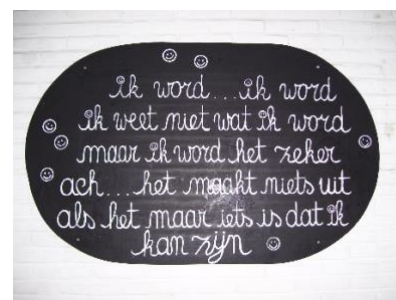 ik word...ik word
ik weet niet wat ik word
maar ik word het zeker
ach...het maakt niets uit
als het maar iets is dat ik
kan zijn